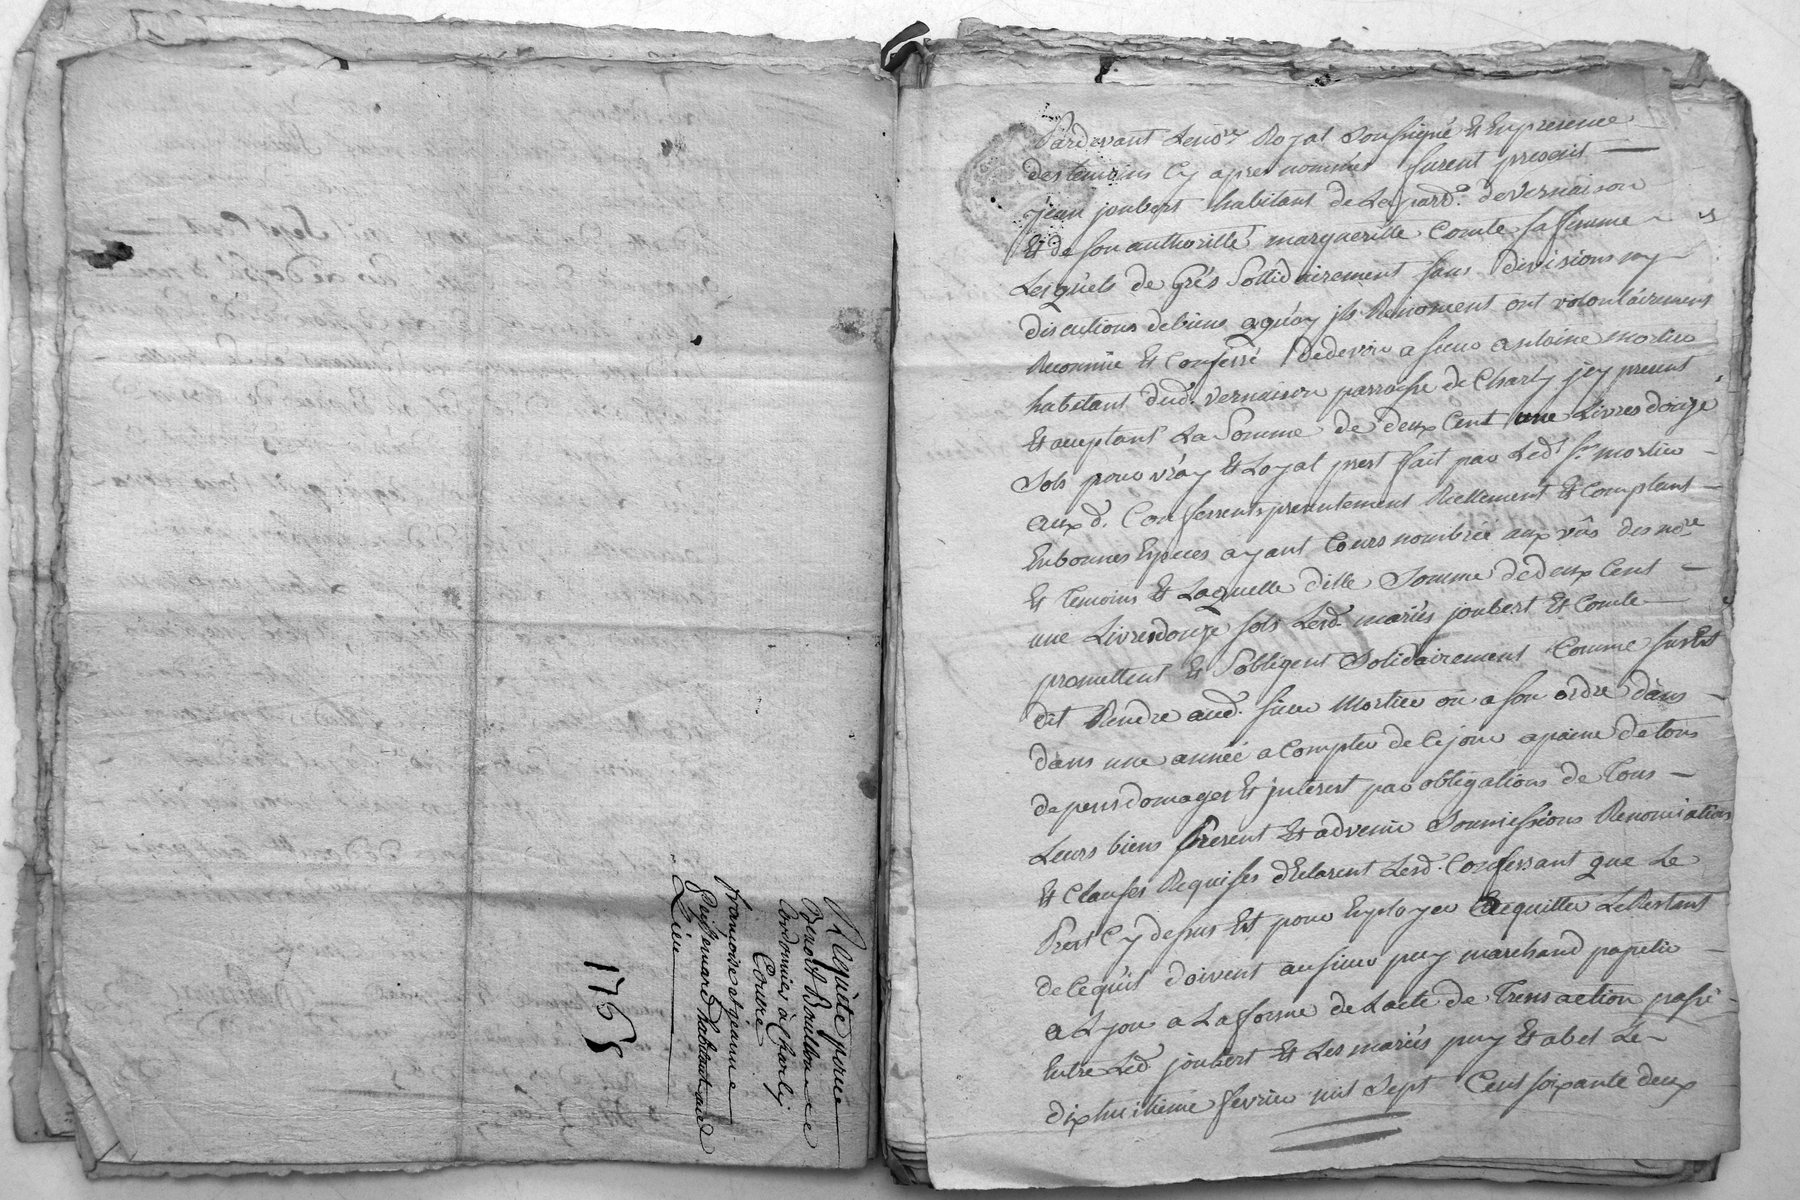 Requête pour
Benoit Bouillon
Cordonnier à Charly
Contre
françoise et jeanne
habitant aud
Lieu
1765
Pardevant Lenore Royal Soussigné Et En presence
des temoins Cy apres nommés furent presents
jean joubert habitant de La parse. de vernaison
Et de son authorité margueritte Comte sa femme
Lesquels de Grés Sollidairement sans divisions ny
discutions de biens a quoy jls Renoncent ont volontairement
Reconnue Et Confessé de devoir a sieur antoine mortier
habitant dud. vernaison parroisse de Charly jcy present
Et aceptant La Somme de deux Cent une Livres douze
Sols pour vray Et Loyal prest fait par Led. Sr. mortier
aux d. Confessents presentement Reellement Et Comptant
En bonnes Especes ayant Cours nombrée aux vûs des nore
Et temoins Et Laquelle ditte Somme de deux Cent
une Livres douze sols Lesd. mariés joubert Et Comte
promettent Et Sobligent Solidairement Comme sus Est
dit Rendre aud. sieur Mortier ou a son ordre dans
dans une année a Compter de Ce jour a peine de tous
depens domages Et jnterest par obligations de Tous
Leurs biens present Et advenir Soumissions Renonciations
Et Clauses Requises déclarent Lesd. Confessant que Le
Prest Cy dessus Est pour Employer Ca acquitter Le Restant
de Ce quil doivent au sieur puy marchand papetier
a Lyon a La forme de Lacte de Transaction passé
Entre Led. joubert Et Les mariés puy Et abel Le
dixhuitième fevrier mil Sept Cent soixante deux